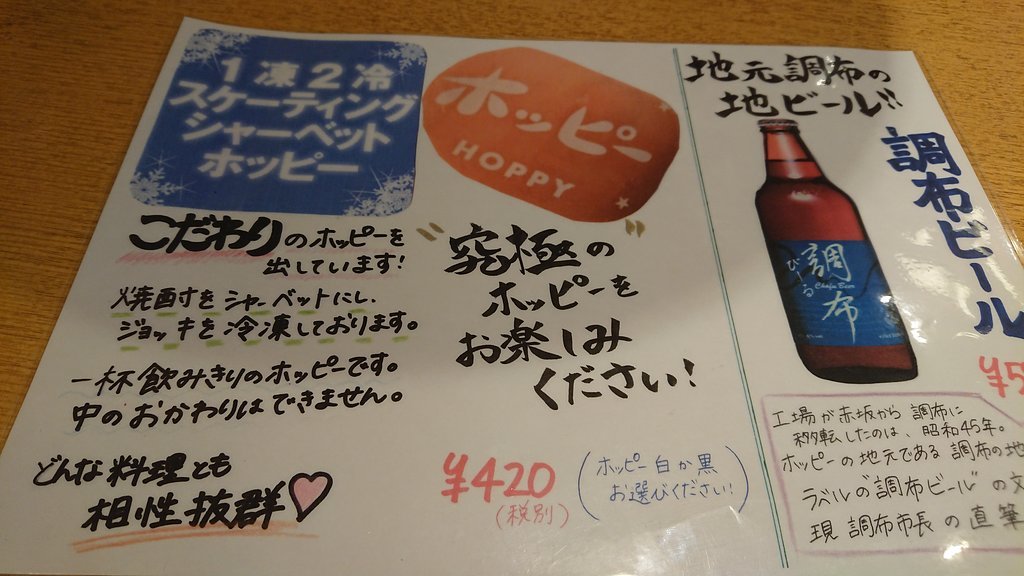 1凍2冷
スケーティング
シャーベット
ホッピー
ホッピー
HOPPY
こだわりのホッピーを
出しています!
焼酎をシャーベットにし、
ジョッキを冷凍しております。
一杯飲みきりのホッピーです。
中のおかわりはできません。
どんな料理とも
相性抜群♡
"究極の"
ホッピーを
お楽しみ
ください!
¥420
(税別)
(ホッピー白か黒
お選びください!)
地元調布の
地ビール!!
調布ビール
調布
びーる
Chofu Beer
¥5
工場が赤坂から調布に
移転したのは、昭和45年。
ホッピーの地元である調布の地
ラベルの"調布ビール"の文
現調布市長の直筆